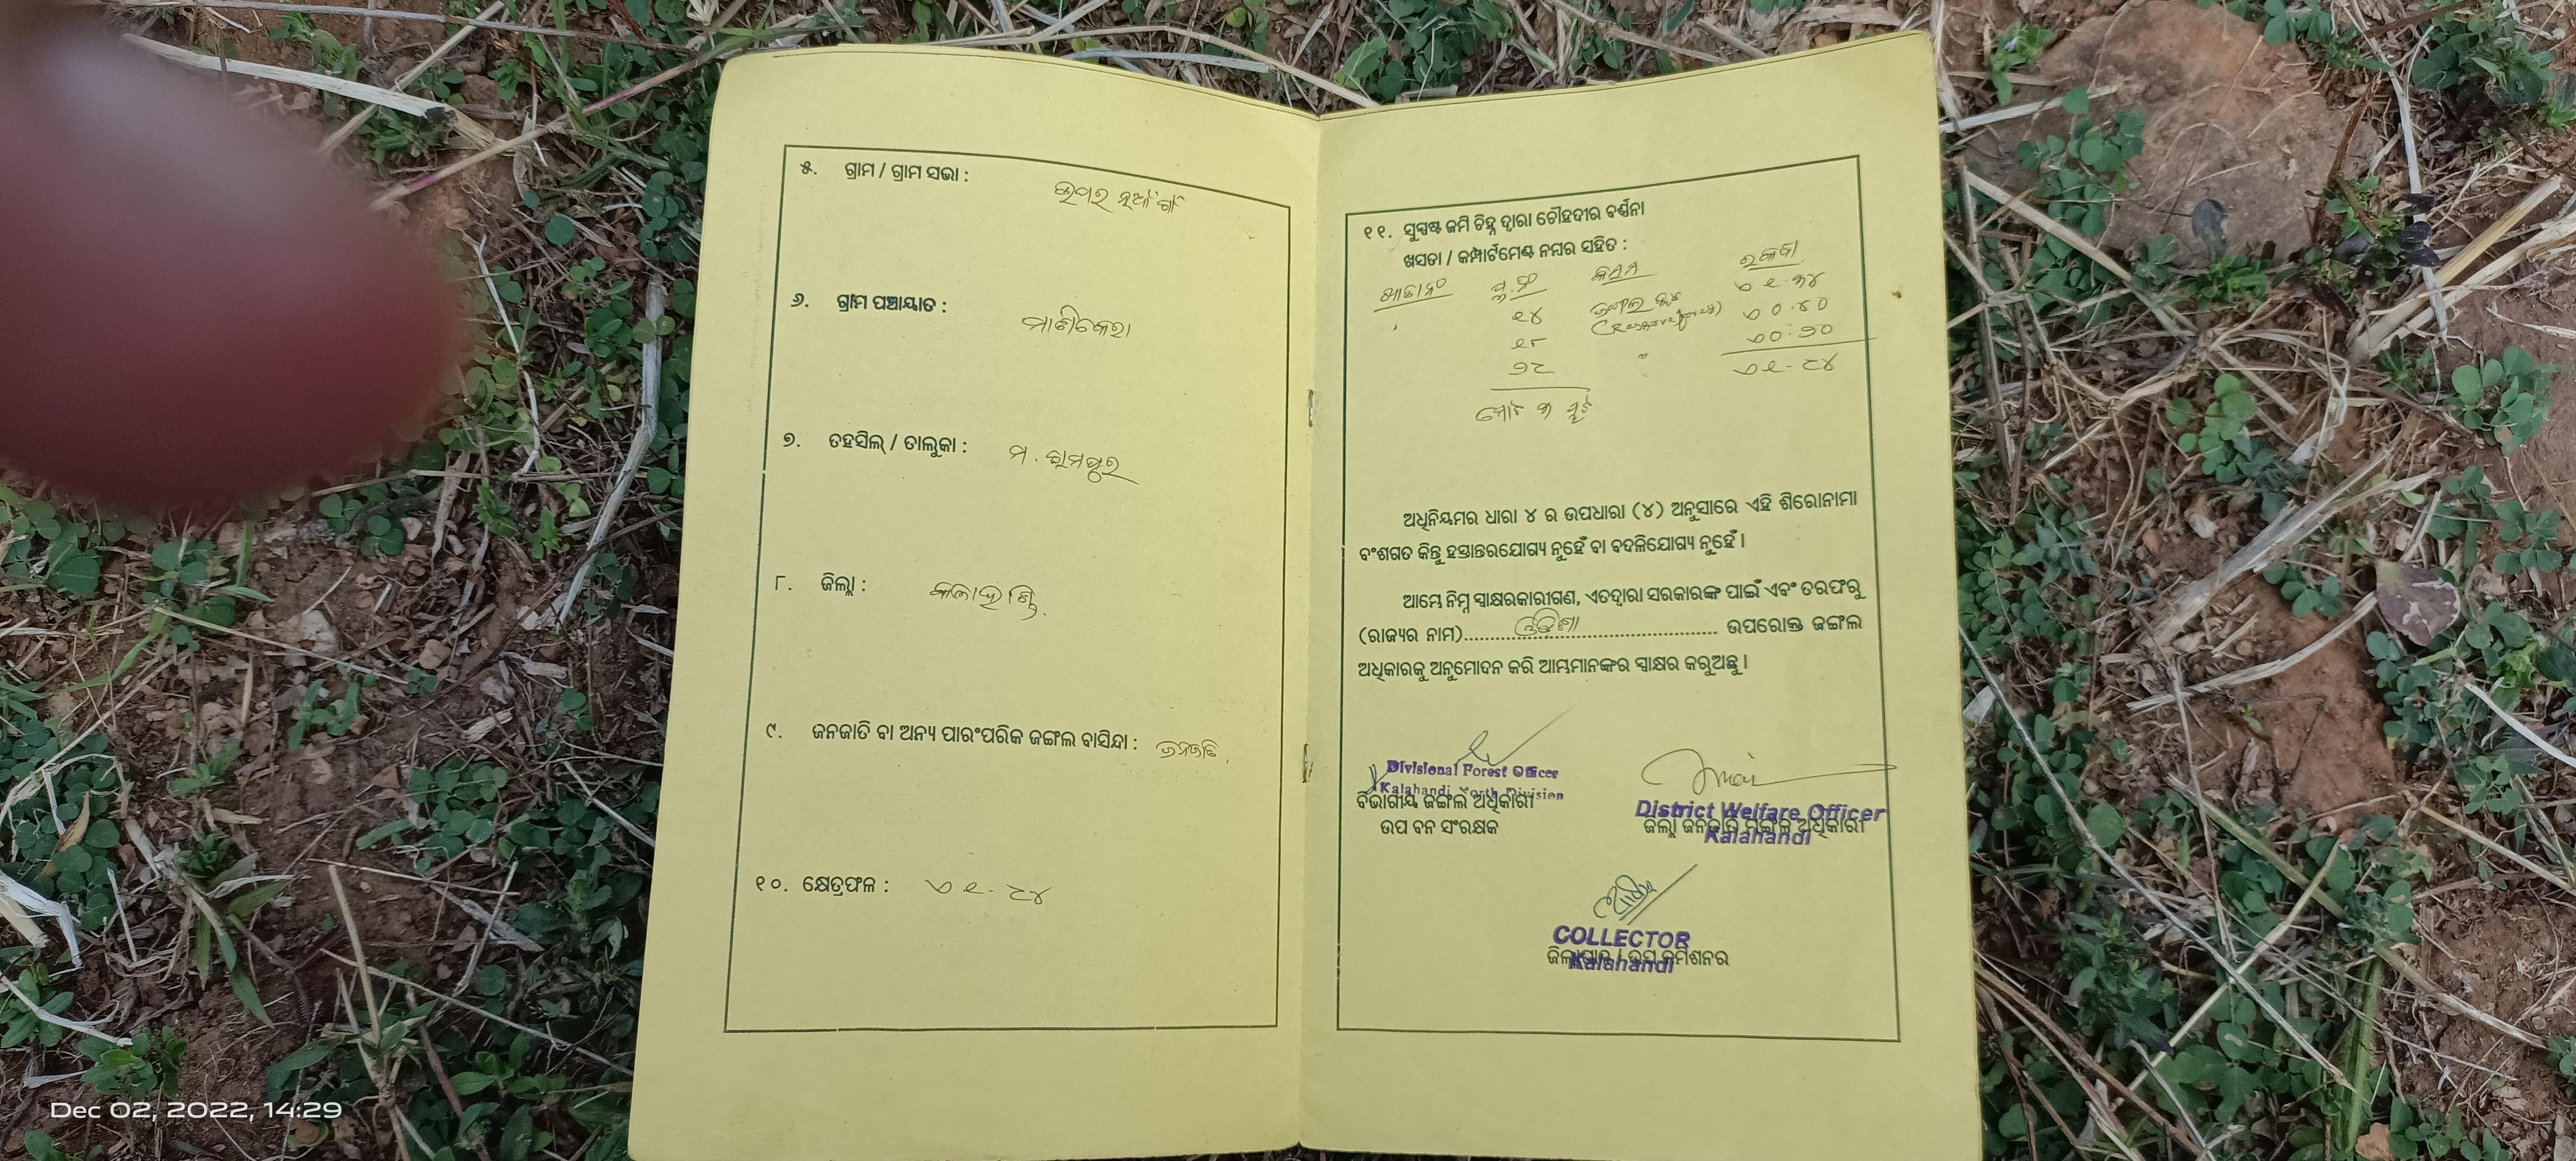 ୫. ଗ୍ରାମ / ଗ୍ରାମ ସଭା : ଉପର ନୂଆଁଗାଁ
୬. ଗ୍ରାମ ପଞ୍ଚାୟାତ : ମାଣିକେରା
୭. ତହସିଲ୍ / ତାଲୁକା : ମ. ରାମପୁର
୮. ଜିଲ୍ଲା : କଳାହାଣ୍ଡି.
୯. ଜନଜାତି ବା ଅନ୍ୟ ପାରଂପରିକ ଜଙ୍ଗଲ ବାସିନ୍ଦା : ଜନଜାତି.
୧୦. କ୍ଷେତ୍ରଫଳ :
୧୧. ସୁସ୍ପଷ୍ଟ ଜମି ଚିହ୍ନ ଦ୍ୱାରା ଚୌହଦୀର ବର୍ଣ୍ଣନା
ଖସଡା / କମ୍ପାର୍ଟମେଣ୍ଟ ନମ୍ବର ସହିତ :
ଖାତା ନଂ ପ୍ଲ.ନଂ କିସମ ରକବା
ଅଧିନିୟମର ଧାରା ୪ ର ଉପଧାରା (୪) ଅନୁସାରେ ଏହି ଶିରୋନାମା
ବଂଶଗତ କିନ୍ତୁ ହସ୍ତାନ୍ତରଯୋଗ୍ୟ ନୁହେଁ ବା ବଦଳିଯୋଗ୍ୟ ନୁହେଁ ।
ଆମ୍ଭେ ନିମ୍ନ ସ୍ୱାକ୍ଷରକାରୀଗଣ, ଏତଦ୍ୱାରା ସରକାରଙ୍କ ପାଇଁ ଏବଂ ତରଫରୁ
(ରାଜ୍ୟର ନାମ)........ଓଡ଼ିଶା........ ଉପରୋକ୍ତ ଜଙ୍ଗଲ
ଅଧିକାରକୁ ଅନୁମୋଦନ କରି ଆମ୍ଭମାନଙ୍କର ସ୍ୱାକ୍ଷର କରୁଅଛୁ ।
Divisional Forest Officer
Kalahandi North Division
ବିଭାଗୀୟ ଜଙ୍ଗଲ ଅଧିକାରୀ
ଉପ ବନ ସଂରକ୍ଷକ
District Welfare Officer
ଜିଲ୍ଲା ଜନଜାତି ମଙ୍ଗଳ ଅଧିକାରୀ
Kalahandi
COLLECTOR
ଜିଲ୍ଲାପାଳ / ଉପ କମିଶନର
Kalahandi
Dec 02, 2022, 14:29